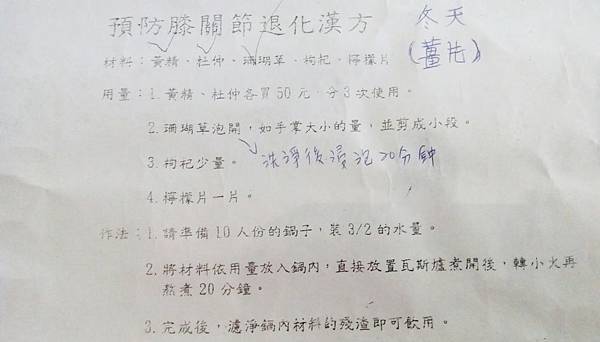 預防膝關節退化漢方
冬天
(薑片)
材料：黃精、杜仲、珊瑚草、枸杞、檸檬片
用量：1.黃精、杜仲各買50元，分3次使用。
2.珊瑚草泡開，如手掌大小的量，並剪成小段。
3.枸杞少量。
洗淨後浸泡20分鐘
4.檸檬片一片。
作法：1.請準備10人份的鍋子，裝3/2的水量。
2.將材料依用量放入鍋內，直接放置瓦斯爐煮開後，轉小火再
熬煮20分鐘。
3.完成後，濾淨鍋內材料的殘渣即可飲用。